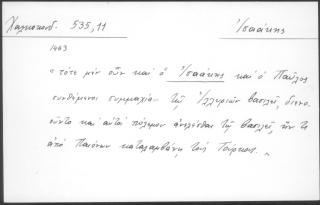 Χαλκοκονδ. 535,11 Ἰσαάκης
1463
"τότε μὲν οὖν καὶ ὁ Ἰσαάκης καὶ ὁ Παῦλος
συνθέμενοι συμμαχίαν τῷ Ἰλλυριῶν βασιλεῖ, διενο-
οῦντο καὶ αὐτοὶ πόλεμον ἀνελέσθαι τῷ βασιλεῖ, ἢν τε
ἀπὸ Παιόνων καταλαμβάνῃ τοὺς Τούρκους."